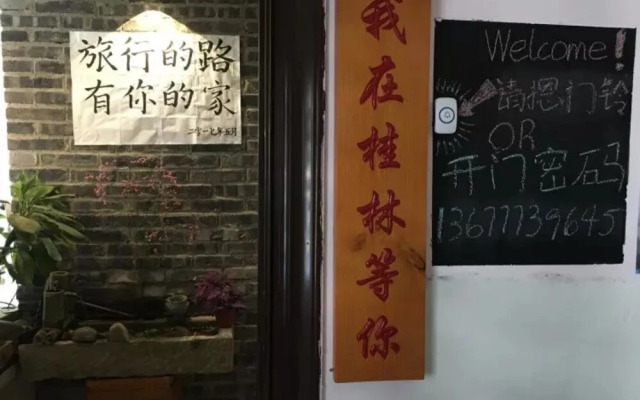 旅行的路
有你的家
二零一七年五月
我在桂林等你
Welcome!
请摁门铃
OR
开门密码
13677739645